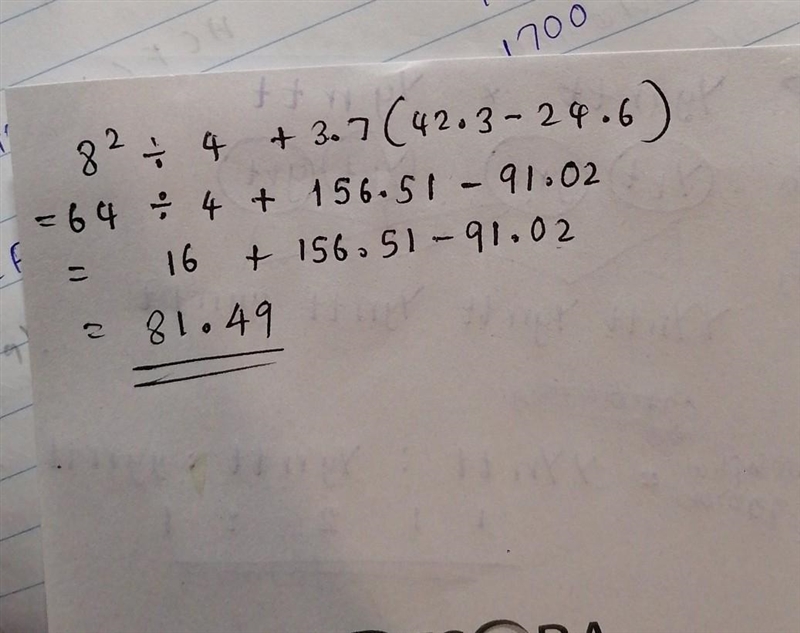 1700
8² ÷ 4 + 3.7(42.3 - 24.6)
= 64 ÷ 4 + 156.51 - 91.02
= 16 + 156.51 - 91.02
= 81.49